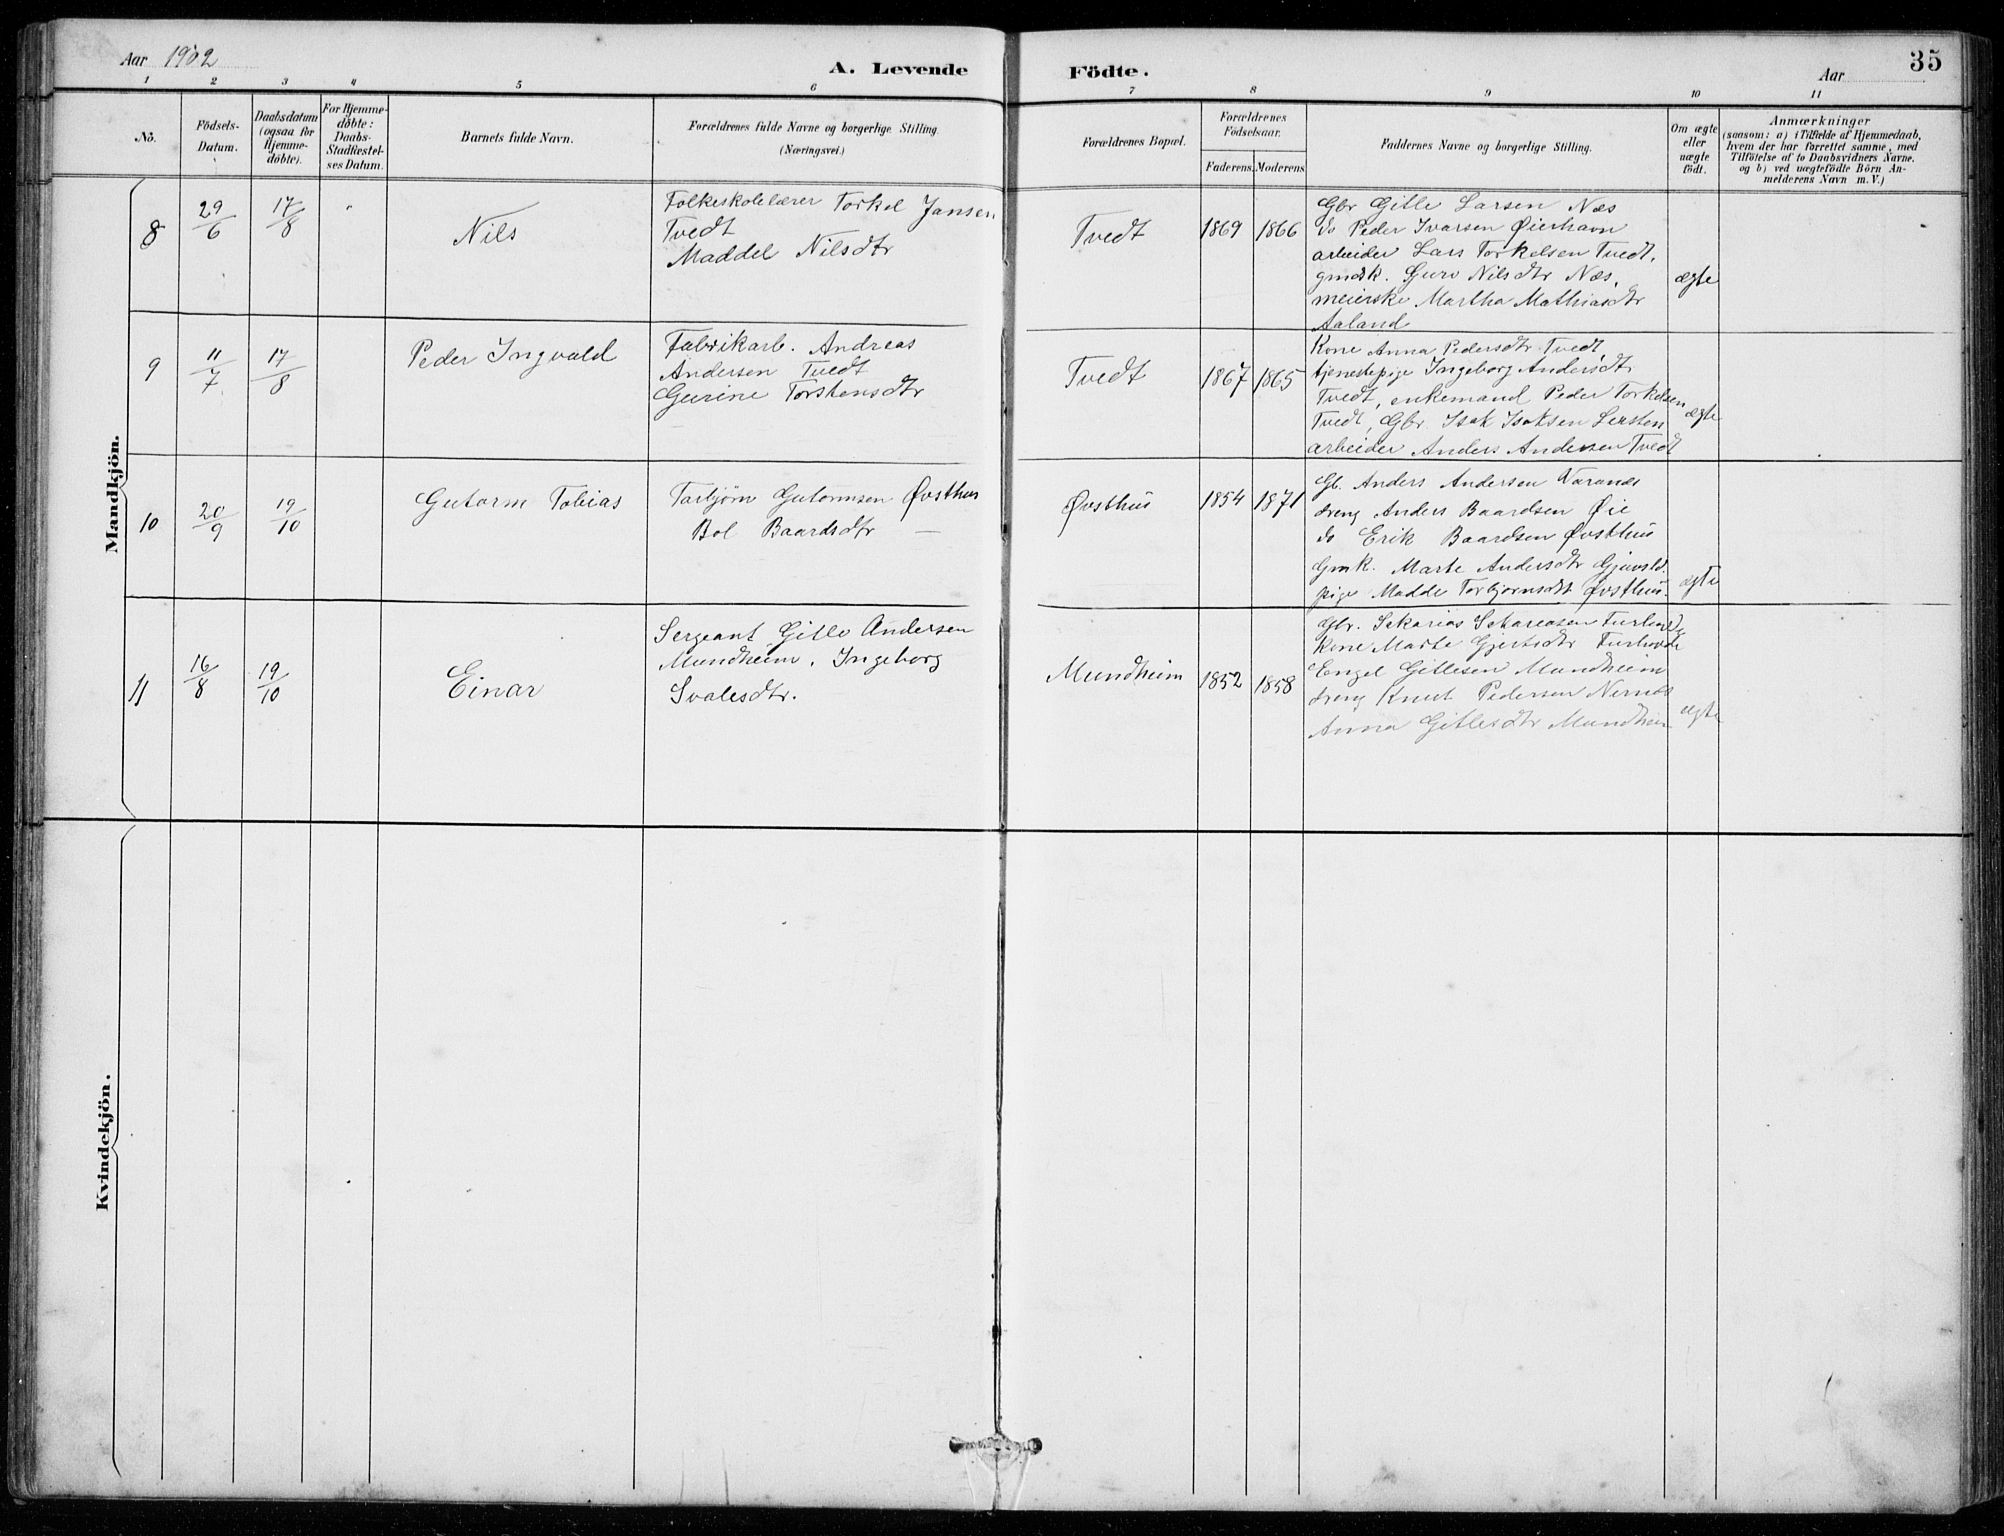 Aar 1902
A. Levende
Födte.
Aar
35
1 2 3 4 5 6 7 8 9 10 11
No.
Födsels-
Datum.
Daabsdatum
(ogsaa for
Hjemme-
döbte).
For Hjemme-
döbte:
Daabs-
Stadfæstel-
ses Datum.
Barnets fulde Navn.
Forældrenes fulde Navne og borgerlige Stilling.
(Næringsvei.)
Forældrenes Bopæl.
Forældrenes
Födselsaar.
Faderens. Moderens
Faddernes Navne og borgerlige Stilling.
Om ægte
eller
uægte
födt.
Anmærkninger
(saasom: a) i Tilfælde af Hjemmedaab,
hvem der har forrettet samme, med
Tilföielse af to Daabsvidners Navne,
og b) ved uægtefödte Börn An-
melderens Navn m. V.)
Mandkjön.
8
29/6
17/8
Nils
Folkeskolelærer Torkel Jansen
Tvedt
Maddel Nilsdtr
Tvedt
1869 1866
Gbr Gitle Larsen Næs
do Peder Ivarsen Øierhavn
arbeider Lars Torkelsen Tvedt,
gmdsk. Guro Nilsdtr Næs,
meierske Martha Mathiasdtr
Aaland
ægte
9
11/7
17/8
Peder Ingvald
Fabrikarb. Andreas
Andersen Tvedt
Gurine Torstensdtr
Tvedt
1867 1865
Kone Anna Pedersdtr Tvedt,
tjenestepige Ingeborg Andersdtr
Tvedt, enkemand Peder Torkelsen
Tvedt, Gbr. Isak Isaksen
arbeider Anders Andersen Tvedt
ægte
10
20/9
19/10
Gutorm Tobias
Torbjørn Gutormsen Øvsthus
Bol Baardsdtr —
Øvsthus
1854 1871
Gb. Anders Andersen
dreng Anders Baardsen Øie
do Erik Baardsen Øvsthus
Gmk. Marte Andersdtr
pige Madde Torbjørnsdtr Øvsthus.
ægte
11
16/8
19/10
Einar
Sergeant Gitle Andersen
Mundheim, Ingeborg
Svalesdtr.
Mundheim
1852 1858
Gbr. Sekarias Sekariasen
Kone Marte Gjertsdtr
Engel Gitlesen Mundheim
dreng Knut Pedersen
Anna Gitlesdtr Mundheim
ægte
Kvindekjön.